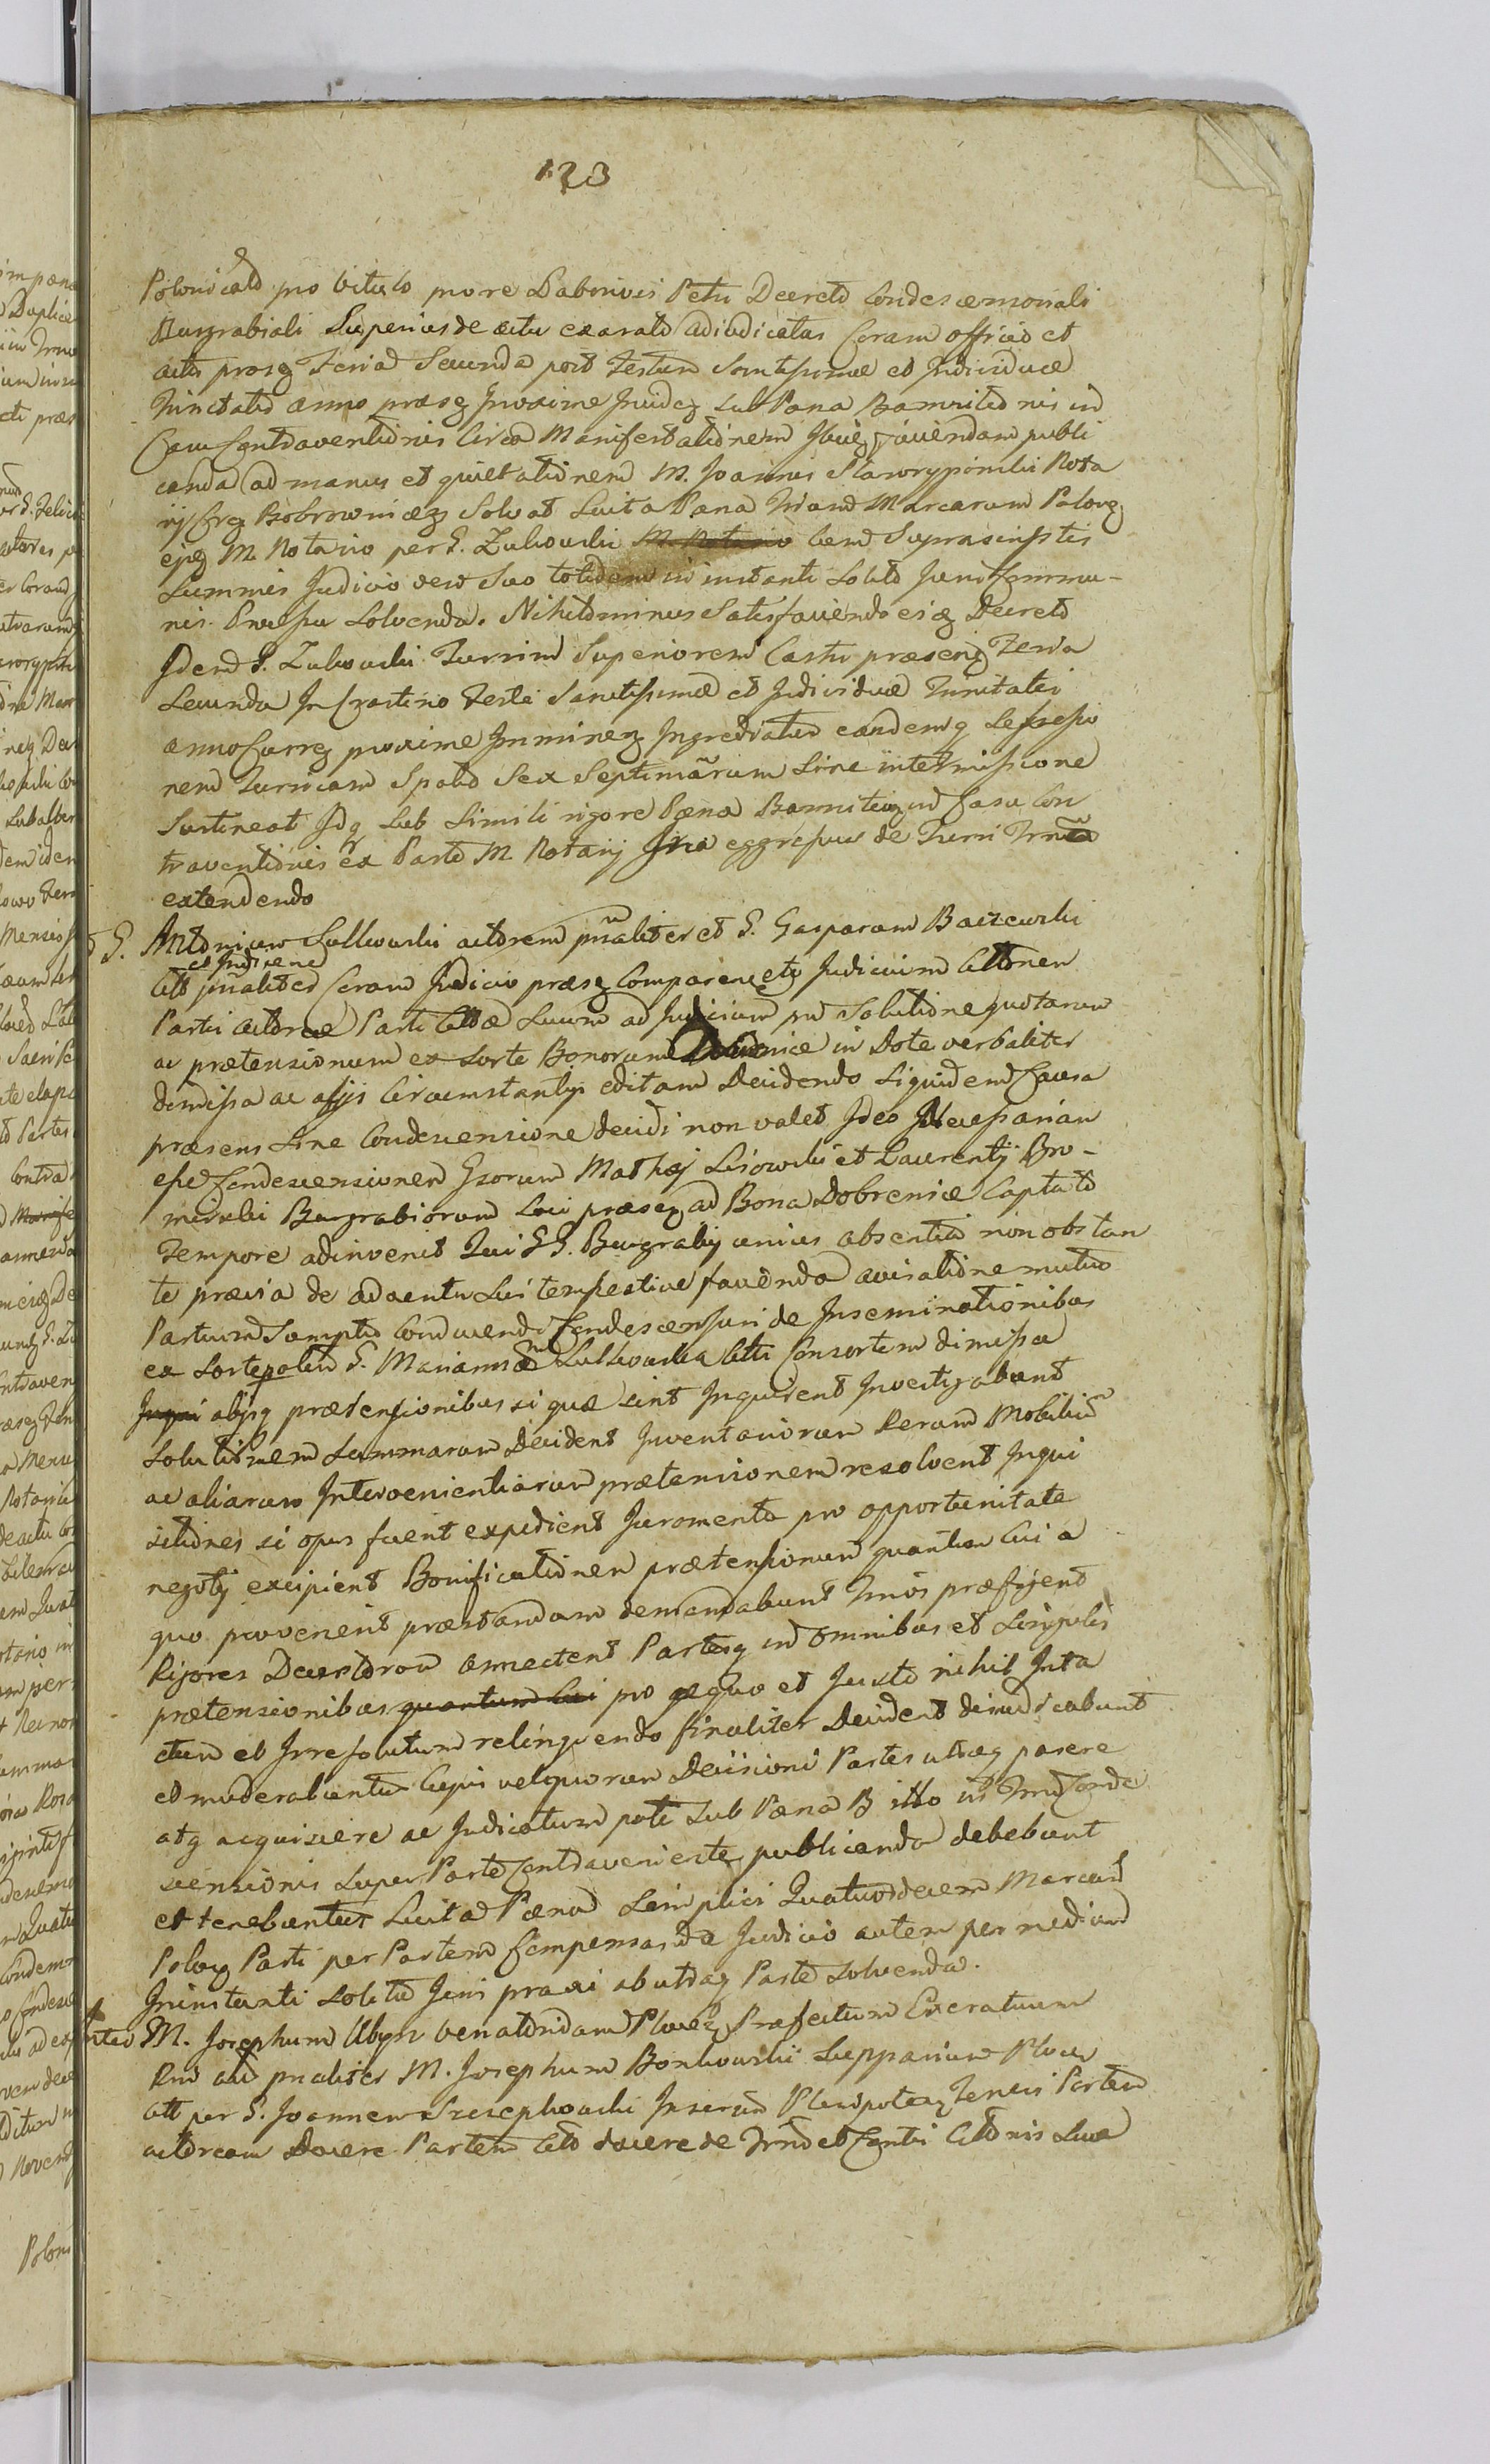 123
Polonicald pro vitulo more Laborioси Petri Decreto Condescensoriali
Burgrabiali Superius de actu exarato adiudicatas Coram officio et
actis præsentibus Feria Secunda post Festum Sanctissimæ et Individuæ
Trinitatis anno præsenti proxime sub Pæna Bannitionis in
Casu Contraventionis Circa Manifestationem publi
canda ad manus et quietationem M. Joannis Starorypinski Nota
rij Bobrownicen Solvat Luita Pæna Trium Marcarum Polon
ejq M. Notario per G. Zukowski M. Notario cum Suprascriptis
Summis Judicio vero Suo totidem in instanti Solito Juris Commu-
nis Processu Solvenda. Nihilominus Satisfaciendo eiq Decreto
Idem G. Zukowski Turrim Superiorem Castri præsen Feria
Secunda In Crastino Festi Sanctissimæ et Individuæ Trinitatis
anno Curren proxime Imminen Ingrediatur eandemq Sessio
nem Turricam Spatio Sex Septimanarum Sine intermissione
Sustineat Idq Sub Simili rigore Pæna Bannitionis in Casu Con
traventionis ex Parte M. Notarij eggressus de Turri
extendendo
G. Antonium Sulkowski actorem pnaliter et G. Gasparum Baczewski
et Judicene
Citt pnaliter Coram Judicio præsen Comparen Judicium Cittonem
Partis actoreæ Parti Cittæ Suum ad Judicium pro Solutione quotarum
ac prætensionum ex Sorte Bonorum Dobrenice in Dote verbaliter
dimissa ac alijs Circumstantijs editam Decidendo Siquidem Causa
præsens Sine Condescensione decidi non valet Ideo Necessariam
esse Condescensionem Gsorum Mathæj Lisowski et Laurentij Bro-
mirski Burgrabiorum Loci præsen ad Bona Dobrenice Captato
Tempore adinvenit Qui GG. Burgrabij unius absentia non obstan
te prævia de adventu Sui tempestive facienda avisatione mutuo
Partium Sumptu Conducendi Condescensuri de Inseminationibus
ex Sorte G. Mariannæ Sulkowska Citti Consortem dimissa
Inqui alijsq prætensionibus si quæ sint Inquirent Investigabunt
Solutionem Summarum Decident Inventariorum Rerum Mobilium
ac aliarum Intervenientiarum prætensionem resolvent Inqui
sitiones si opus fuerit expedient Juramenta pro opportunitate
negotij excipient Bonificationem prætensionum quantum Cui a
quo provenerit præstandam demandabunt Tmios præfigent
Rigores Decretorum annectent Partesq in Omnibus et Singulis
prætensionibus quantum Cui pro æquo et Justo nihil Inta
ctum et Irresolutum relinquendo finaliter Decident dimudicabunt
et moderabuntur Cujus vel quorum Decisioni Partes utræq parere
atq acquiescere ac Judicatum pati Sub Pæna B itto in Conde
scensionis Super Parte Contraveniente publicanda debebunt
et tenebuntur Luita Pæna Simplici Quatuordecem Marcarum
Polon Parti per Partem Compensanda Judicio autem per medium
In instanti Solita Juris praxi ab utraq Parte Solvenda.
M. Josephum Ubysz Venatoridam Plocen Præfectum Exeratuum
pnaliter M. Josephum Bonkowski Supparium Plocen
Citt per G. Joannem Szczepkowski Plenipoten Teneri Partem
actoream Docere Partem Citt docere de et Cittonis Sua